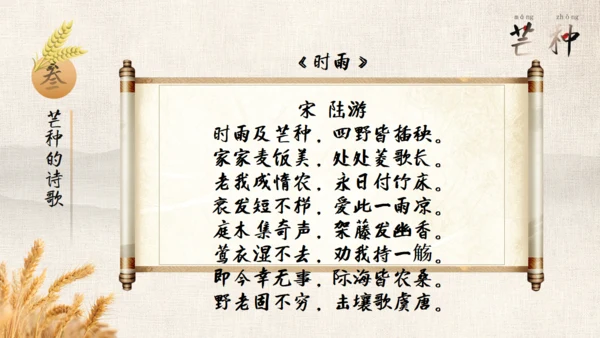 máng zhòng
芒种
叁
芒种的诗歌
《时雨》
宋 陆游
时雨及芒种，四野皆插秧。
家家麦饭美，处处菱歌长。
老我成惰农，永日付竹床。
衰发短不栉，爱此一雨凉。
庭木集奇声，架藤发幽香。
莺衣湿不去，劝我持一觞。
即今幸无事，际海皆农桑。
野老固不穷，击壤歌虞唐。